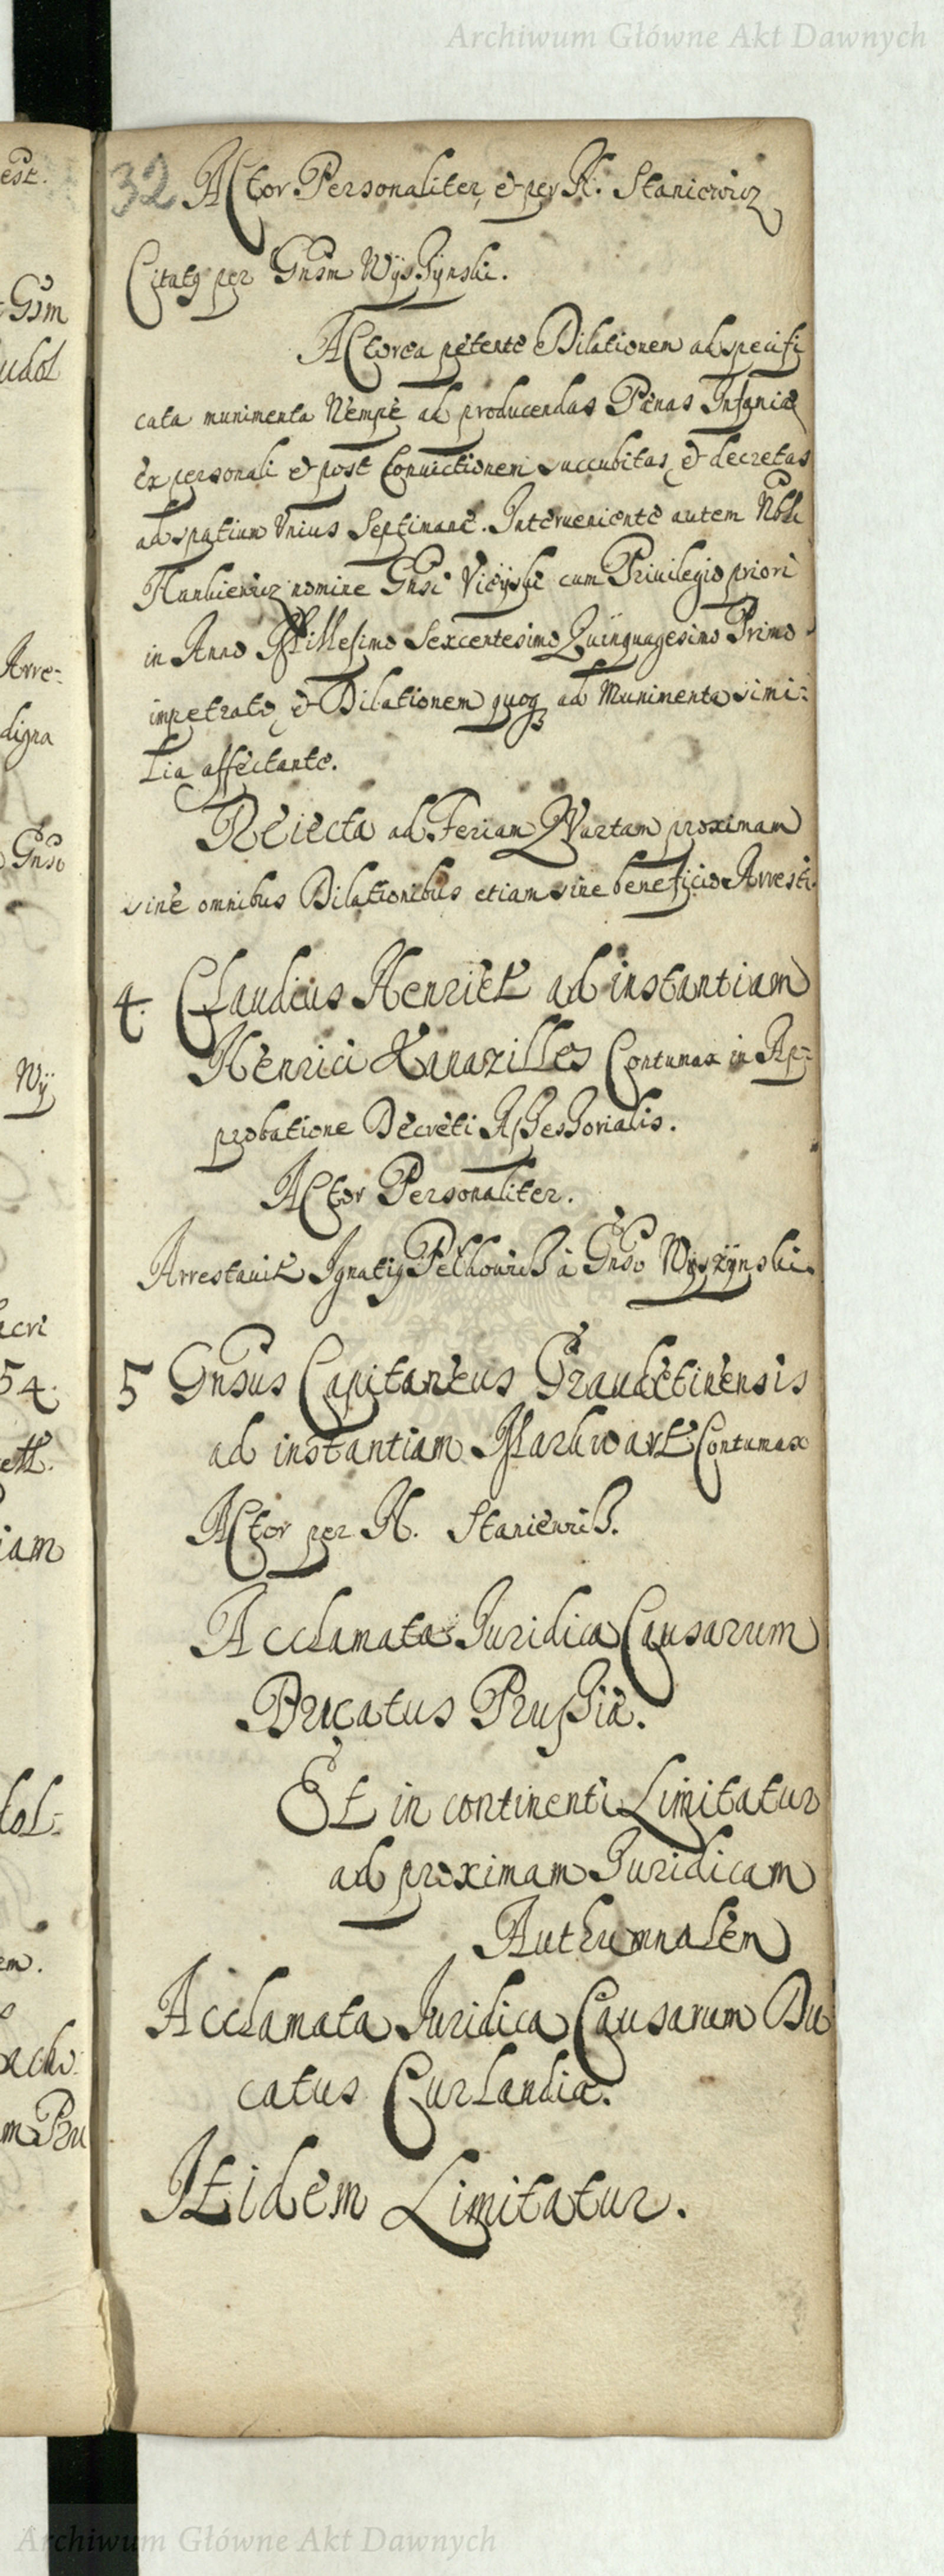 Archiwum Główne Akt Dawnych
32 Actor Personaliter, et per H. Staniewicz
Citatq per Gnsm Wyszynski.
Actorea petente Dilationem ad specifi
cata munimenta Nempe ad producendas Penas Infamiæ
ex personali et post Convictionem succubitas et decretas
ad spatium Vnius Septimane. Interueniente autem Nbli
nomine Gnsi cum Priuilegio priori
in Anno Millesimo Sexcentesimo Quinquagesimo Primo
impetrato, et Dilationem quoq ad Munimenta simi:
lia affectante.
Reiecta ad Feriam Quartam proximam
sine omnibus Dilationibus etiam sine beneficio Arresti.
4. Claudius Henriet ad instantiam
Henrici Contumax in Ap:
probatione Decreti Assessorialis.
Actor Personaliter.
Arrestauit Ignatiq à Gnso Wyszynski.
5 Gnsus Capitaneus Graudetinensis
ad instantiam Markwart Contumax
Actor per H. Staniewicz.
Acclamata Juridica Causarum
Ducatus Prussiæ.
Et in continenti Limitatur
ad proximam Juridicam
Authumnalem
Acclamata Juridica Causarum Du
catus Curlandiæ.
Itidem Limitatur.
est.
Gsm
udol
Arre-
digna
Gnso
Wÿ
acri
54.
iam
dol-
em.
m Pru
Archiwum Główne Akt Dawnych